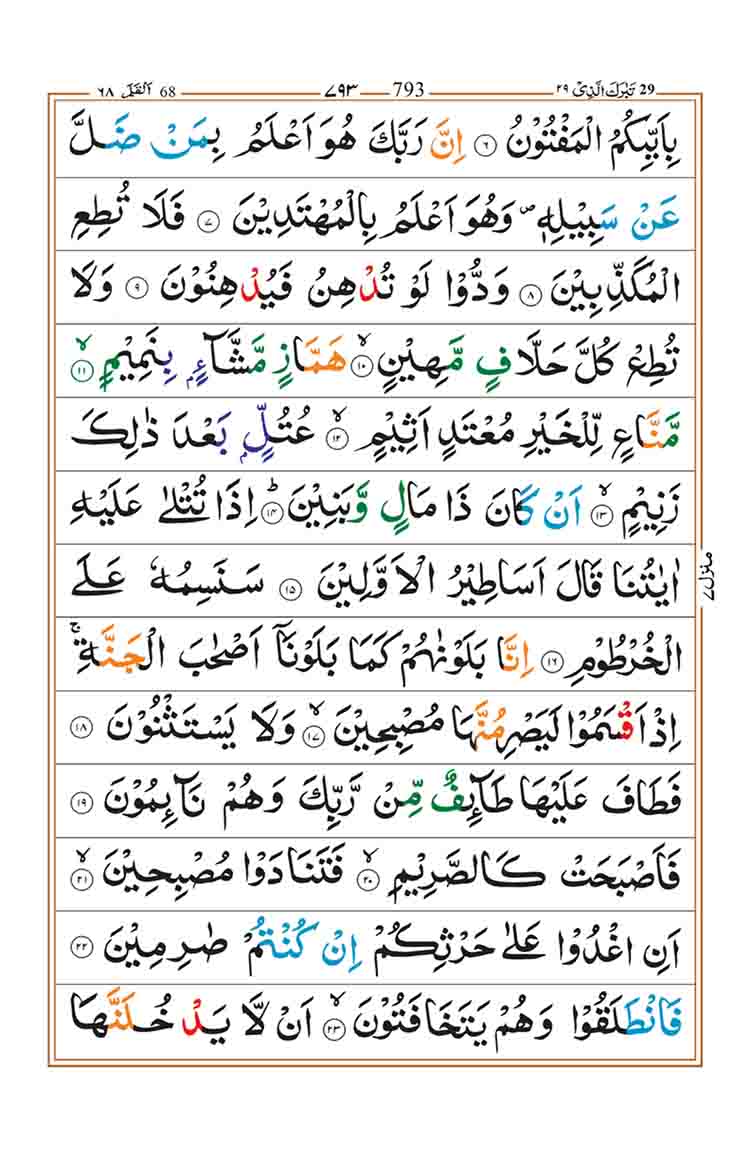 29 تَبٰرَكَ الَّذِىْ ٢٩ 793 ٧٩٣ 68 اَلْقَلَم ٦٨
بِاَيِّيكُمُ الْمَفْتُوْنُ ۝٦ اِنَّ رَبَّكَ هُوَ اَعْلَمُ بِمَنْ ضَلَّ
عَنْ سَبِيْلِهٖ ۪ وَهُوَ اَعْلَمُ بِالْمُهْتَدِيْنَ ۝٧ فَلَا تُطِعِ
الْمُكَذِّبِيْنَ ۝٨ وَدُّوْا لَوْ تُدْهِنُ فَيُدْهِنُوْنَ ۝٩ وَلَا
تُطِعْ كُلَّ حَلَّافٍ مَّهِيْنٍ ۙ۝١٠ هَمَّازٍ مَّشَّآءٍۭ بِنَمِيْمٍ ۙ۝١١
مَّنَّاعٍ لِّلْخَيْرِ مُعْتَدٍ اَثِيْمٍ ۙ۝١٢ عُتُلٍّۭ بَعْدَ ذٰلِكَ
زَنِيْمٍ ۙ۝١٣ اَنْ كَانَ ذَا مَالٍ وَّبَنِيْنَ ؕ۝١٤ اِذَا تُتْلٰى عَلَيْهِ
اٰيٰتُنَا قَالَ اَسَاطِيْرُ الْاَوَّلِيْنَ ۝١٥ سَنَسِمُهٗ عَلَى
الْخُرْطُوْمِ ۝١٦ اِنَّا بَلَوْنٰهُمْ كَمَا بَلَوْنَاۤ اَصْحٰبَ الْجَنَّةِ ۚ
اِذْ اَقْسَمُوْا لَيَصْرِمُنَّهَا مُصْبِحِيْنَ ۙ۝١٧ وَلَا يَسْتَثْنُوْنَ ۝١٨
فَطَافَ عَلَيْهَا طَآئِفٌ مِّنْ رَّبِّكَ وَهُمْ نَآئِمُوْنَ ۝١٩
فَاَصْبَحَتْ كَالصَّرِيْمِ ۙ۝٢٠ فَتَنَادَوْا مُصْبِحِيْنَ ۙ۝٢١
اَنِ اغْدُوْا عَلٰى حَرْثِكُمْ اِنْ كُنْتُمْ صٰرِمِيْنَ ۝٢٢
فَانْطَلَقُوْا وَهُمْ يَتَخَافَتُوْنَ ۙ۝٢٣ اَنْ لَّا يَدْخُلَنَّهَا
منزل ٧